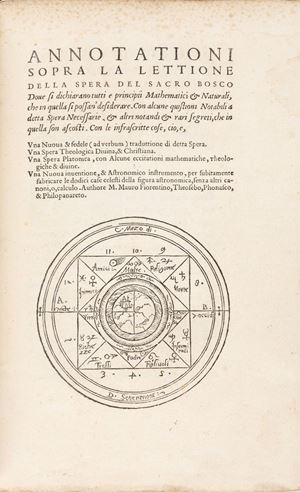 ANNOTATIONI
SOPRA LA LETTIONE
DELLA SPERA DEL SACRO BOSCO
Doue si dichiarano tutti e principii Mathematici & Naturali,
che in quella si possan' desiderare. Con alcune questioni Notabili a
detta Spera Necessarie, & altri notandi & rari segreti, che in
quella son ascosti. Con le infrascritte cose, cio, e,
Vna Nuoua & fedele (ad verbum) traduttione di detta Spera.
Vna Spera Theologica Diuina, & Christiana.
Vna Spera Platonica, con Alcune eccitationi mathematiche, Theolo-
giche & diuine.
Vna Nuoua inuentione, & Astronomico instrumento, per subitamente
fabricare le dodici case celesti della figura astronomica, senza altri ca-
noni, o, calculo. Authore M. Mauro Fiorentino, Theosebo, Phonasco,
& Philopanareto.
C. Mezo di
11 10 9
Amici Madre Religione
12 8
Inimici Morte
A B
7
2 6
3 4 5
Fratelli Padre Figliuoli
D. Settentrione